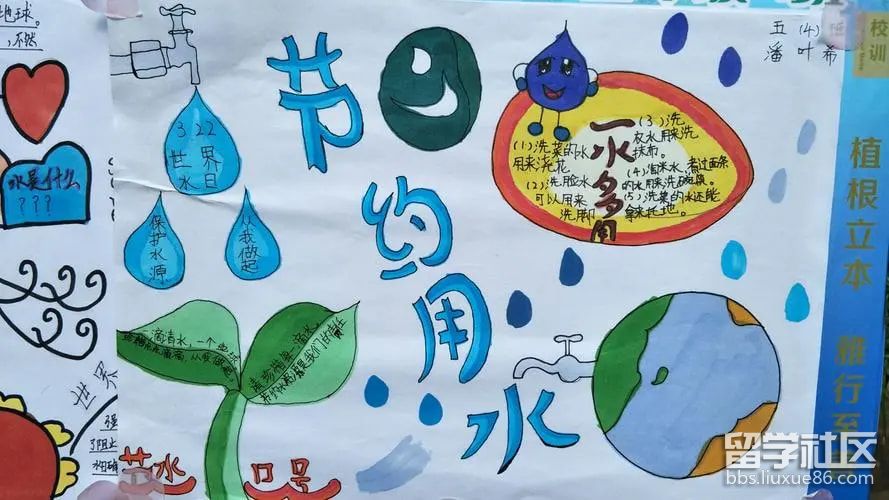 地球。
,不然
水是什么
???
世界
五 (4) 班
潘叶希
校训
植根立本
旅行至
3.22
世界
水日
保护水源
从我做起
节约用水
一水多用
(1)洗菜的水
用来浇花
(2)洗脸水
可以用来
洗脚
(3)洗
衣水用来洗
抹布。
(4)淘米水,煮过面条
的水用来洗碗筷。
(5)洗菜的水还能
拿来拖地。
滴清水,一个地球
节水
口号
留学社区
bbs.liuxue86.com